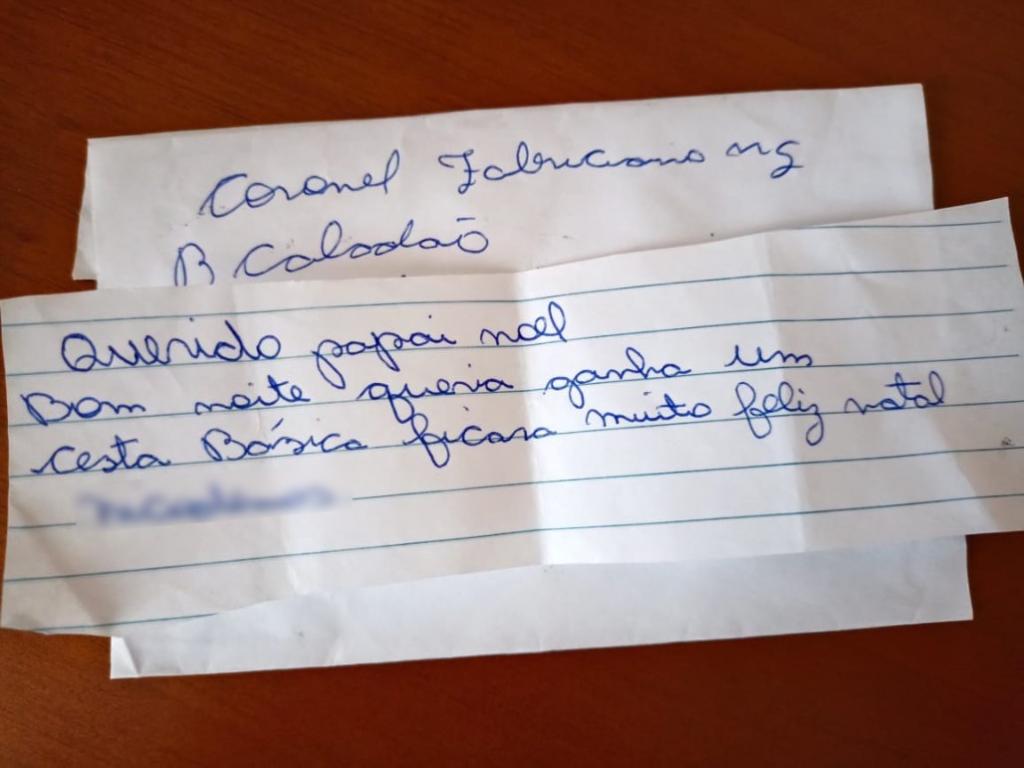 Coronel Fabriciano mg
B Caladão
Querido papai noel
Bom noite queria ganha um
cesta Básica ficara muito feliz natal